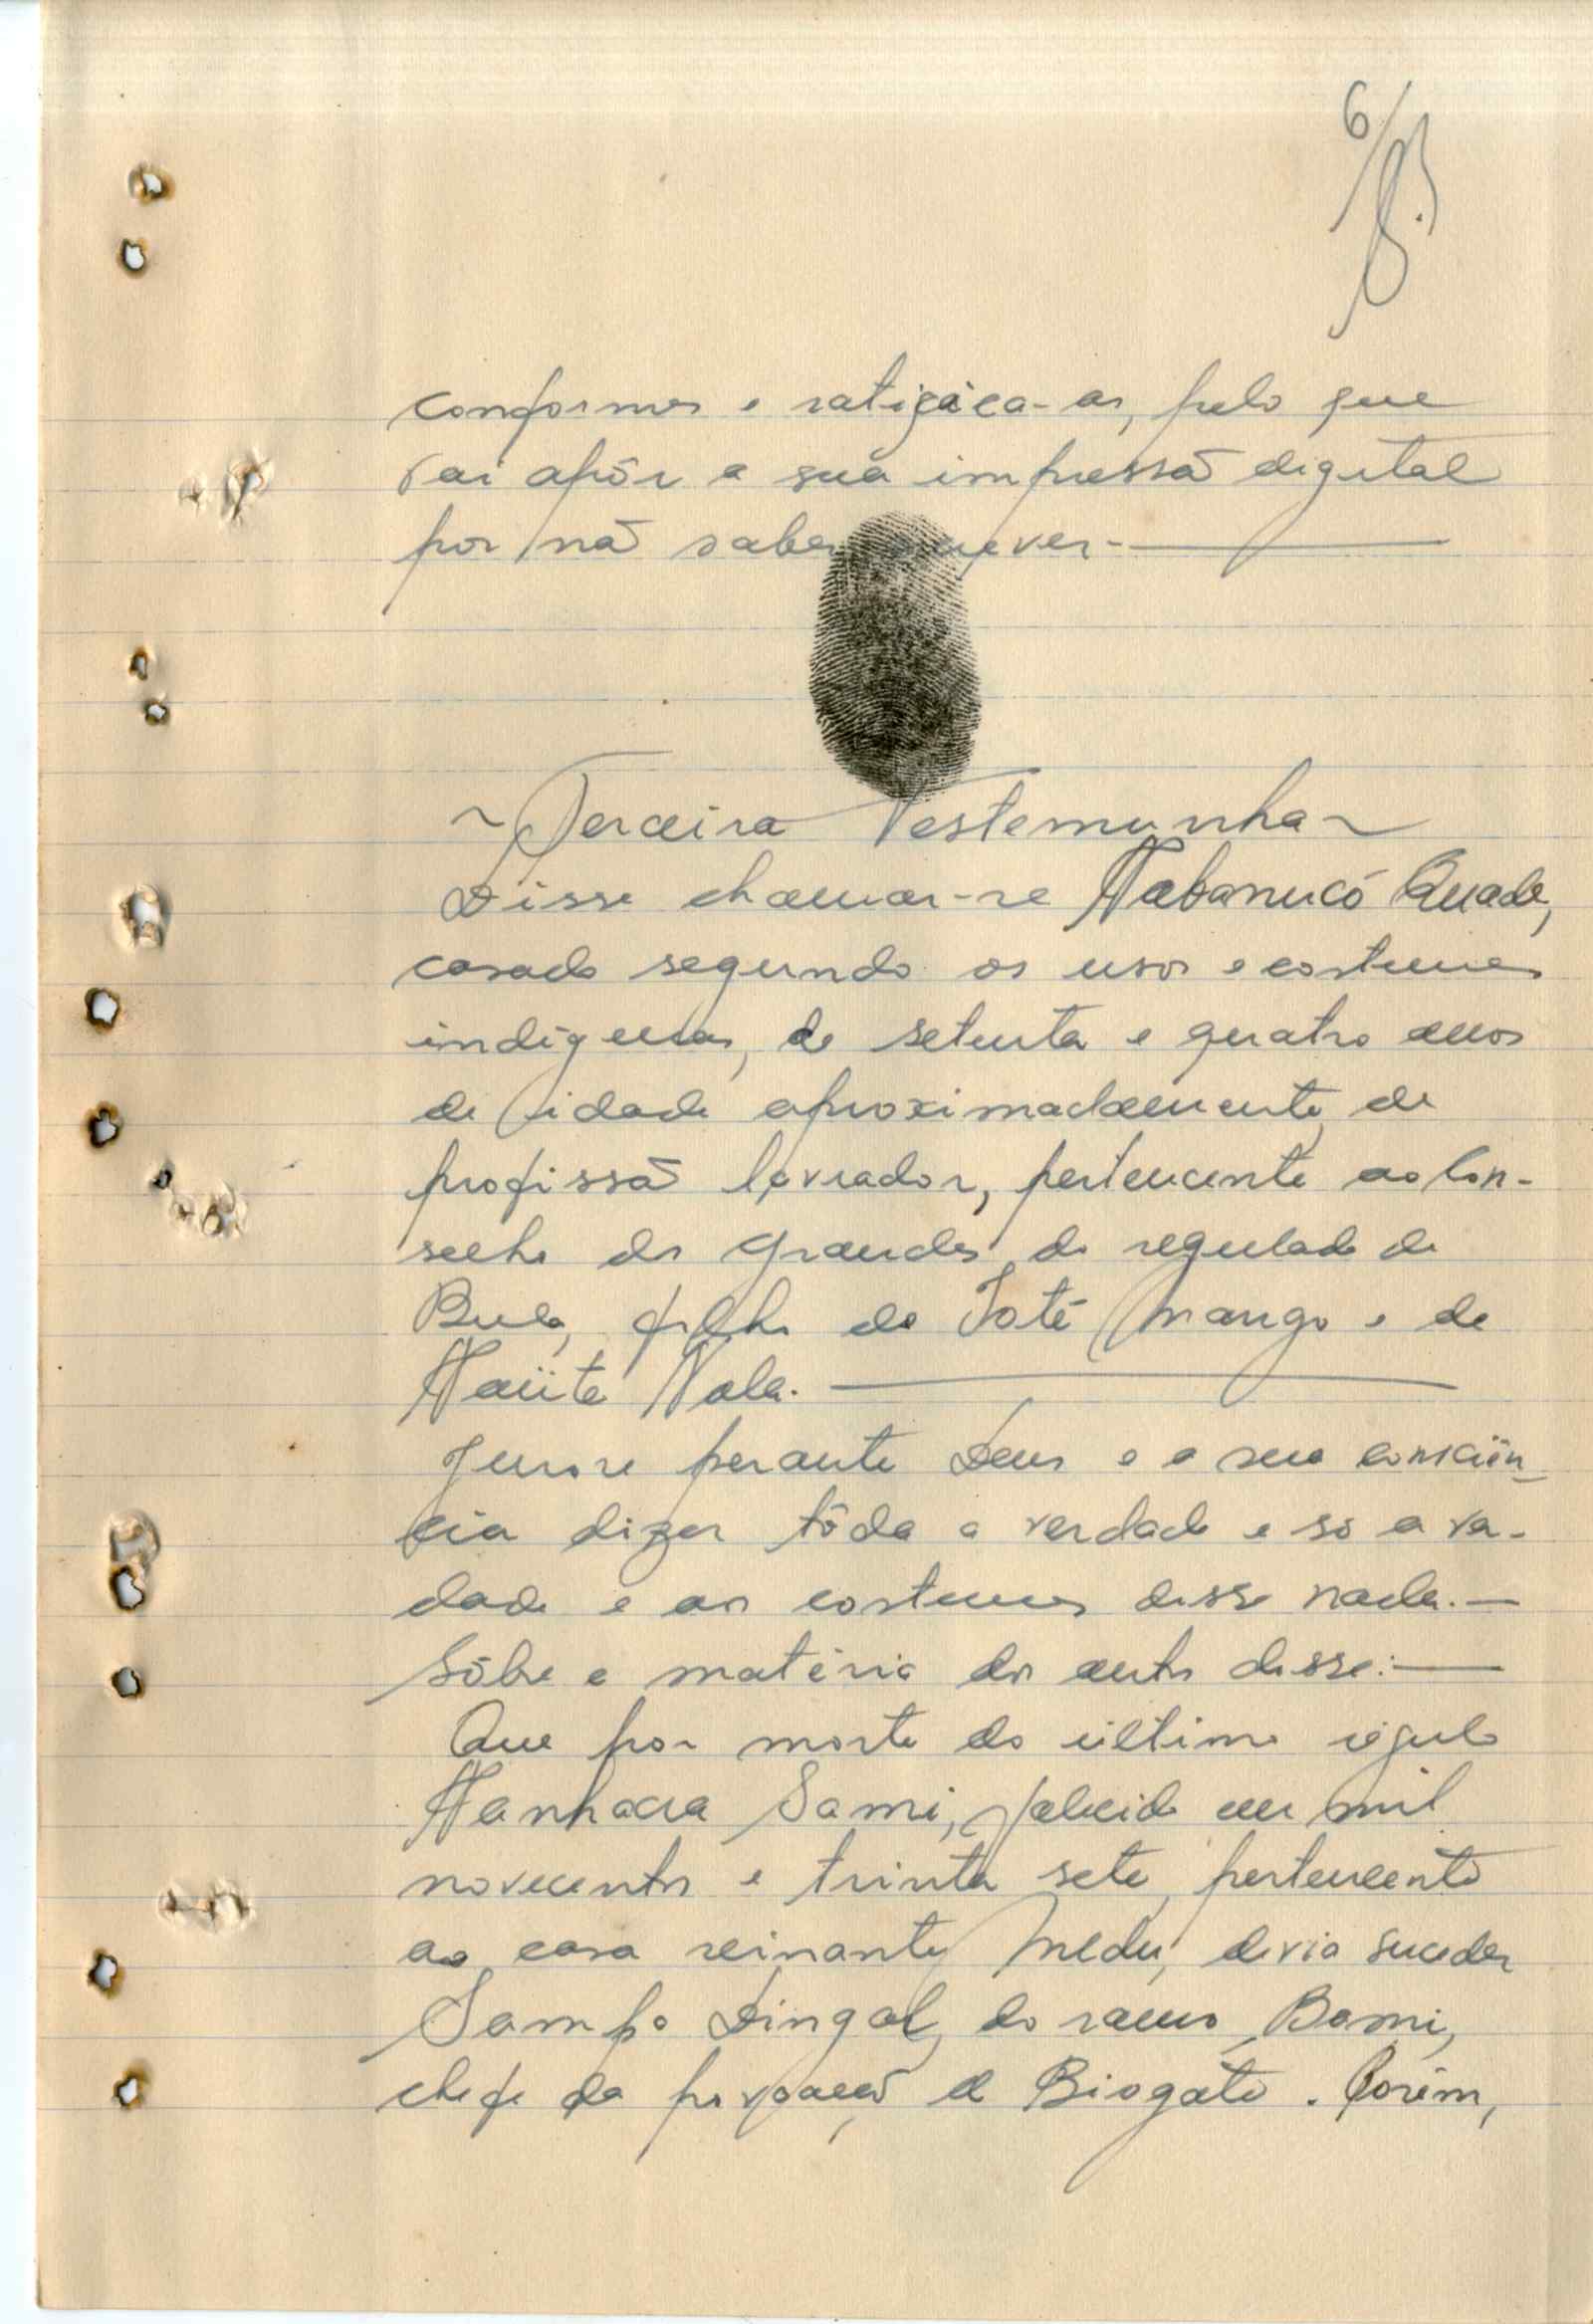 6
conformes e ratifica-as, pelo que
vai apôr a sua impressã digital
por nã saber escrever-
~Terceira Testemunha~
Disse chamar-se Nabanucó Quade,
casado segundo os usos e costumes
indígenas, de setenta e quatro anos
de idade aproximadamente, de
profissã lavrador, pertencente ao Con-
selho dos Grandes do regulado de
Bula, filho de Toté Mango e de
Naiita Nala.
Jurou perante Deus e a sua consciên-
cia dizer tôda a verdade e só a ver-
dade e aos costumes disse nada.—
Sôbre a matéria dos autos disse:—
Que por morte do último régulo
Nanhaca Sami, falecido em mil
novecentos e trinta sete, pertencente
ao casa reinante, devia suceder
Sampo Dingal, do ramo Bomi,
chefe da povoaçã de Biogate. Porém,